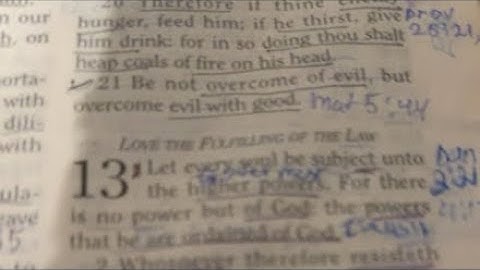 20 Therefore if thine
hunger, feed him; if he thirst, give
him drink: for in so doing thou shalt
heap coals of fire on his head.
21 Be not overcome of evil, but
overcome evil with good. mat 5:44
LOVE THE FULFILLING OF THE LAW
13 Let every soul be subject unto
the higher powers. For there
is no power but of God: the powers
that be are ordained of God.
2 Whosoever therefore resisteth
n our
h, on
orta-
with
dili-
with
ula-
Prov
25:21,